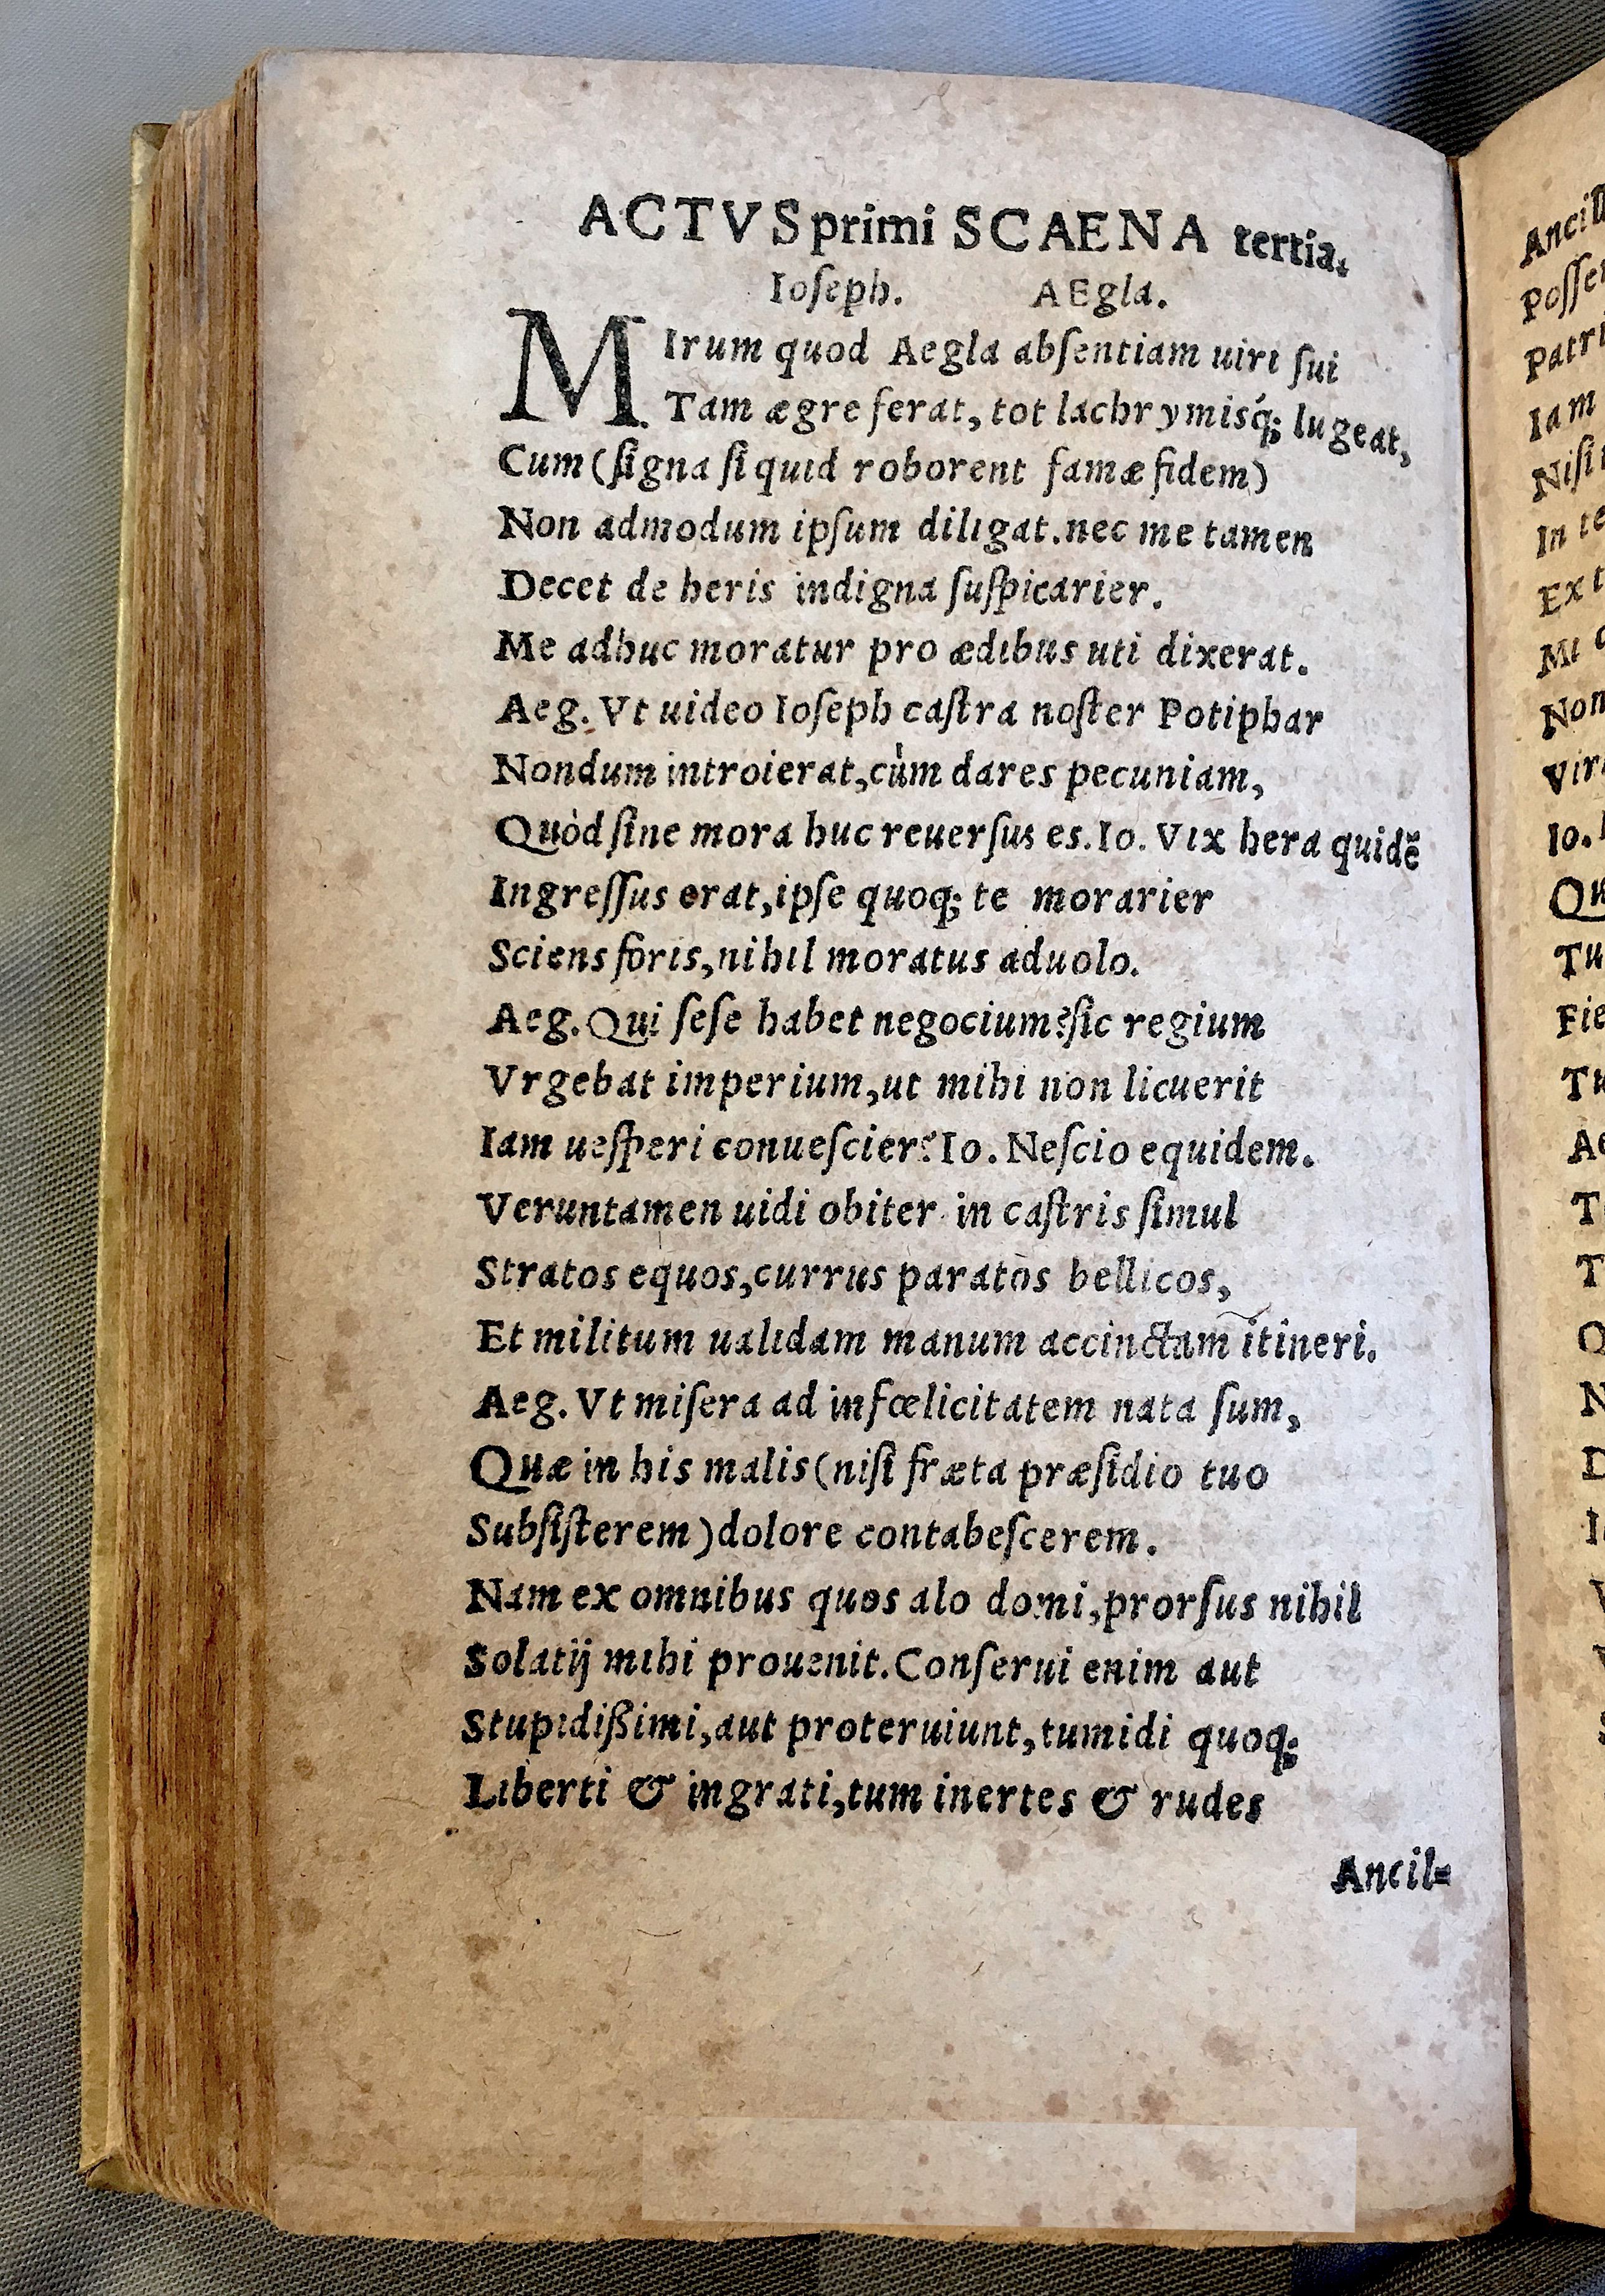 ACTVS primi SCAENA tertia.
Ioſeph. AEgla.
MIrum quod Aegla abſentiam uiri ſui
Tam ægre ferat, tot lachrymisq́; lugeat,
Cum (ſigna ſi quid roborent famæ fidem)
Non admodum ipſum diligat. nec me tamen
Decet de heris indigna ſuſpicarier.
Me adhuc moratur pro ædibus uti dixerat.
Aeg. Vt uideo Ioſeph caſtra noſter Potiphar
Nondum introierat, cùm dares pecuniam,
Quòd ſine mora huc reuerſus es. Io. Vix hera quidẽ
Ingreſſus erat, ipſe quoq; te morarier
Sciens foris, nihil moratus aduolo.
Aeg. Qui ſeſe habet negocium? ſic regium
Vrgebat imperium, ut mihi non licuerit
Iam ueſperi conueſcier? Io. Neſcio equidem.
Veruntamen uidi obiter in caſtris ſimul
Stratos equos, currus paratos bellicos,
Et militum ualidam manum accinctam itineri.
Aeg. Vt miſera ad infœlicitatem nata ſum,
Quæ in his malis (niſi fræta præſidio tuo
Subſiſterem) dolore contabeſcerem.
Nam ex omnibus quos alo domi, prorſus nihil
Solatij mihi prouenit. Conſerui enim aut
Stupidißimi, aut proteruiunt, tumidi quoq;
Liberti & ingrati, tum inertes & rudes
Ancil=
Ancill
Poſſe
Patri
Iam
Niſi
In te
Ex t
Mi
Non
Vir
Io.
Qu
Tu
Fie
Tu